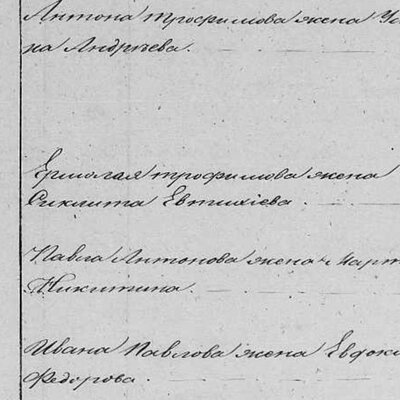 Антона Трофимова жена У
на Андреева.
Ермолая Трофимова жена
Сиклита Евтихіева.
Павла Антонова жена Март
Никитина.
Ивана Павлова жена Евдок
Федорова.